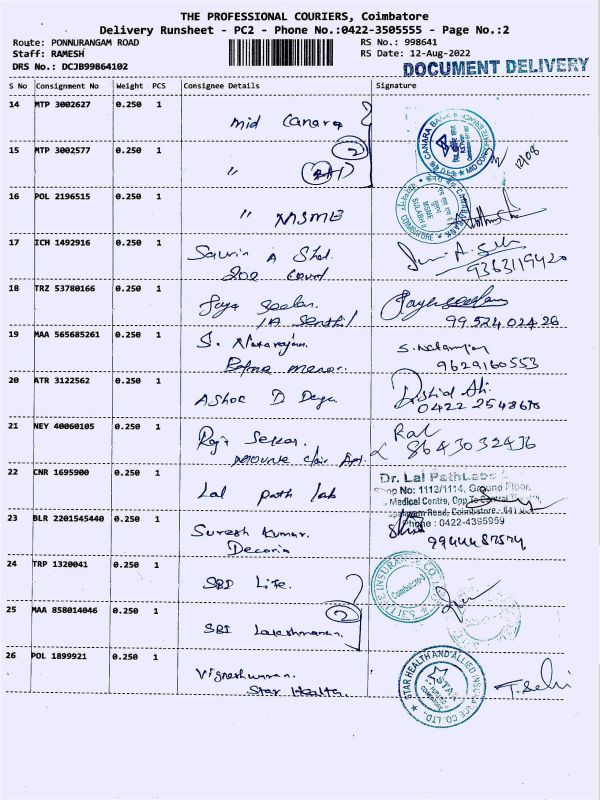 THE PROFESSIONAL COURIERS, Coimbatore
Delivery Runsheet - PC2 - Phone No.:0422-3505555 - Page No.:2
Route: PONNURANGAM ROAD
RS No.: 998641
Staff: RAMESH
RS Date: 12-Aug-2022
DRS No.: DCJB99864102
DOCUMENT DELIVERY
S No Consignment No Weight PCS Consignee Details Signature
14 MTP 3002627 0.250 1
mid Canara
CANARA BANK
15 MTP 3002577 0.250 1
" 2
12/08
16 POL 2196515 0.250 1
" MSME
CANARA BANK
MSME
SULABH
COIMBATORE
17 ICH 1492916 0.250 1
202
9363119420
18 TRZ 53780166 0.250 1
Jaya Seelan.
Jayaseelan
Senthil
99524 02428
19 MAA 565685261 0.250 1
S. Natarajan.
S. Natarajan
9629160553
20 ATR 3122562 0.250 1
Ashoc D
0422
21 NEY 40060105 0.250 1
8643032436
22 CNR 1695900 0.250 1
Lal path lab
Dr. Lal PathLabs
Shop No: 1113/1114, Ground Floor,
Medical Centre, Opp To Central
Road, Coimbatore.
Phone : 0422-4395959
23 BLR 2201545440 0.250 1
Suresh Kumar.
24 TRP 1320041 0.250 1
SBI Life.
LIFE INSURANCE CO
Coimbatore-3
25 MAA 858014046 0.250 1
2
SBI Lakeshmanan.
26 POL 1899921 0.250 1
Vigneshwaran.
Star Health.
STAR HEALTH AND ALLIED INSURANCE CO LTD.
STAR
T. Selvi